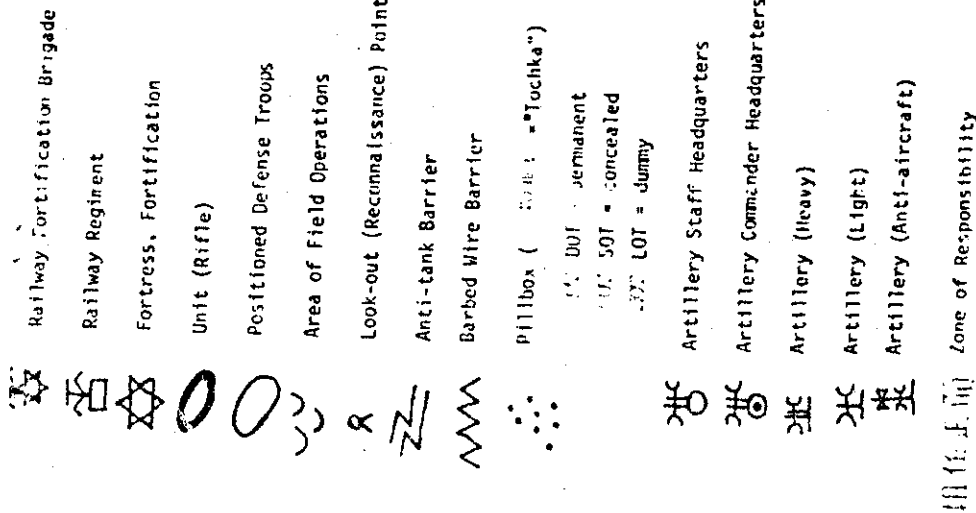 Railway Fortification Brigade
Railway Reginent
Fortress, Fortification
Unit (Rifle)
Positioned Defense Troops
Area of Field Operations
Look-out (Reconnaissance) Point
Anti-tank Barrier
Barbed Wire Barrier
Pillbox ( = "Tochka")
DOT permanent
SOT = concealed
LOT = dummy
Artillery Staff Headquarters
Artillery Commander Headquarters
Artillery (Heavy)
Artillery (Light)
Artillery (Anti-aircraft)
Zone of Responsibility